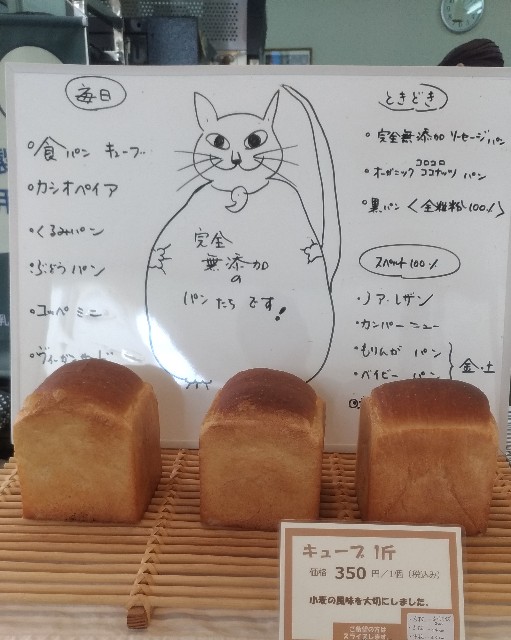 毎日
食パン キューブ
カシオペイア
くるみパン
ぶどうパン
コッペ ミニ
完全
無添加
の
パンたちです!
ときどき
完全無添加 ソーセージパン
オーガニック コロコロ ココナッツ パン
黒パン〈全粒粉100%〉
スペルト100%
ノア・レザン
カンパーニュー
もりんが パン
ベイビー パン
金・土
キューブ 1斤
価格 350円/1個(税込み)
小麦の風味を大切にしました。
ご希望の方は
スライスします。